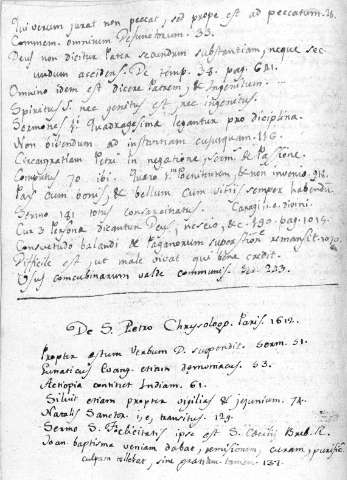 Qui verum jurat non peccat, sed prope est ad peccatum. 28.
Commem. omnium Defunctorum. 33.
Deus non dicitur Pater secundum substantiam, neque sec-
undum accidens. De temp. 38. pag. 641.
Omnino idem est dicere Patrem, & Ingenitum.
Spiritus S. nec genitus est nec ingenitus.
Sermones Quadragesima legantur pro
Non bibendum ad instantiam cujusquam. 116.
Petri in negatione, serm. de Passione.
70. ibi. Quero & non invenio.
Pax cum bonis, & bellum cum vitiis semper habendu.
Sermo 141 totus
Cur 3 Personæ dicuntur Deus, nescio, &c. 190. pag. 1015.
Consuetudo balandi de Paganorum superstitione remansit.
Difficile est, ut male vivat qui bene credit.
Usus concubinarum valde communis. 223.
De S. Petro Chrysologo. Paris. 1612.
Propter æstum Verbum D. suspendit. Serm. 51.
Lunaticus Evang. etiam dæmoniacus. 53.
Aetiopia continet Indiam. 61.
Siluit etiam propter vigilias & jejunium. 74.
Natalis Sanctor. i, e, transitus. 129.
Sermo S. Felicitatis ipse est S.
Joan. baptisma veniam dabat, remissionem, curam,
culpam tollebat, sine gratia tamen. 137.